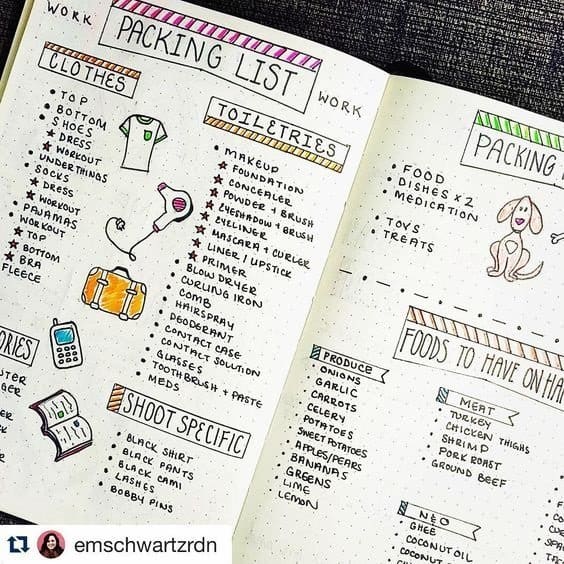 WORK
PACKING LIST
WORK
CLOTHES
• TOP
• BOTTOM
• SHOES
★ DRESS
★ WORKOUT
• UNDERTHINGS
• SOCKS
★ DRESS
★ WORKOUT
• PAJAMAS
• WORKOUT
★ TOP
★ BOTTOM
★ BRA
• FLEECE
TOILETRIES
• MAKEUP
★ FOUNDATION
★ CONCEALER
★ POWDER + BRUSH
★ EYESHADOW + BRUSH
★ EYELINER
★ MASCARA + CURLER
★ LINER / LIPSTICK
★ PRIMER
• BLOW DRYER
• CURLING IRON
• COMB
• HAIRSPRAY
• DEODERANT
• CONTACT CASE
• CONTACT SOLUTION
• GLASSES
• TOOTHBRUSH + PASTE
• MEDS
ORIES
UTER
GER
SHOOT SPECIFIC
• BLACK SHIRT
• BLACK PANTS
• BLACK CAMI
• LASHES
• BOBBY PINS
PACKING
• FOOD
• DISHES x 2
• MEDICATION
• TOYS
• TREATS
FOODS TO HAVE ON HA
PRODUCE
• ONIONS
• GARLIC
• CARROTS
• CELERY
• POTATOES
• SWEET POTATOES
• APPLES/PEARS
• BANANAS
• GREENS
• LIME
• LEMON
MEAT
• TURKEY
• CHICKEN THIGHS
• SHRIMP
• PORK ROAST
• GROUND BEEF
N&O
• GHEE
• COCONUT OIL
• COCONUT
emschwartzrdn